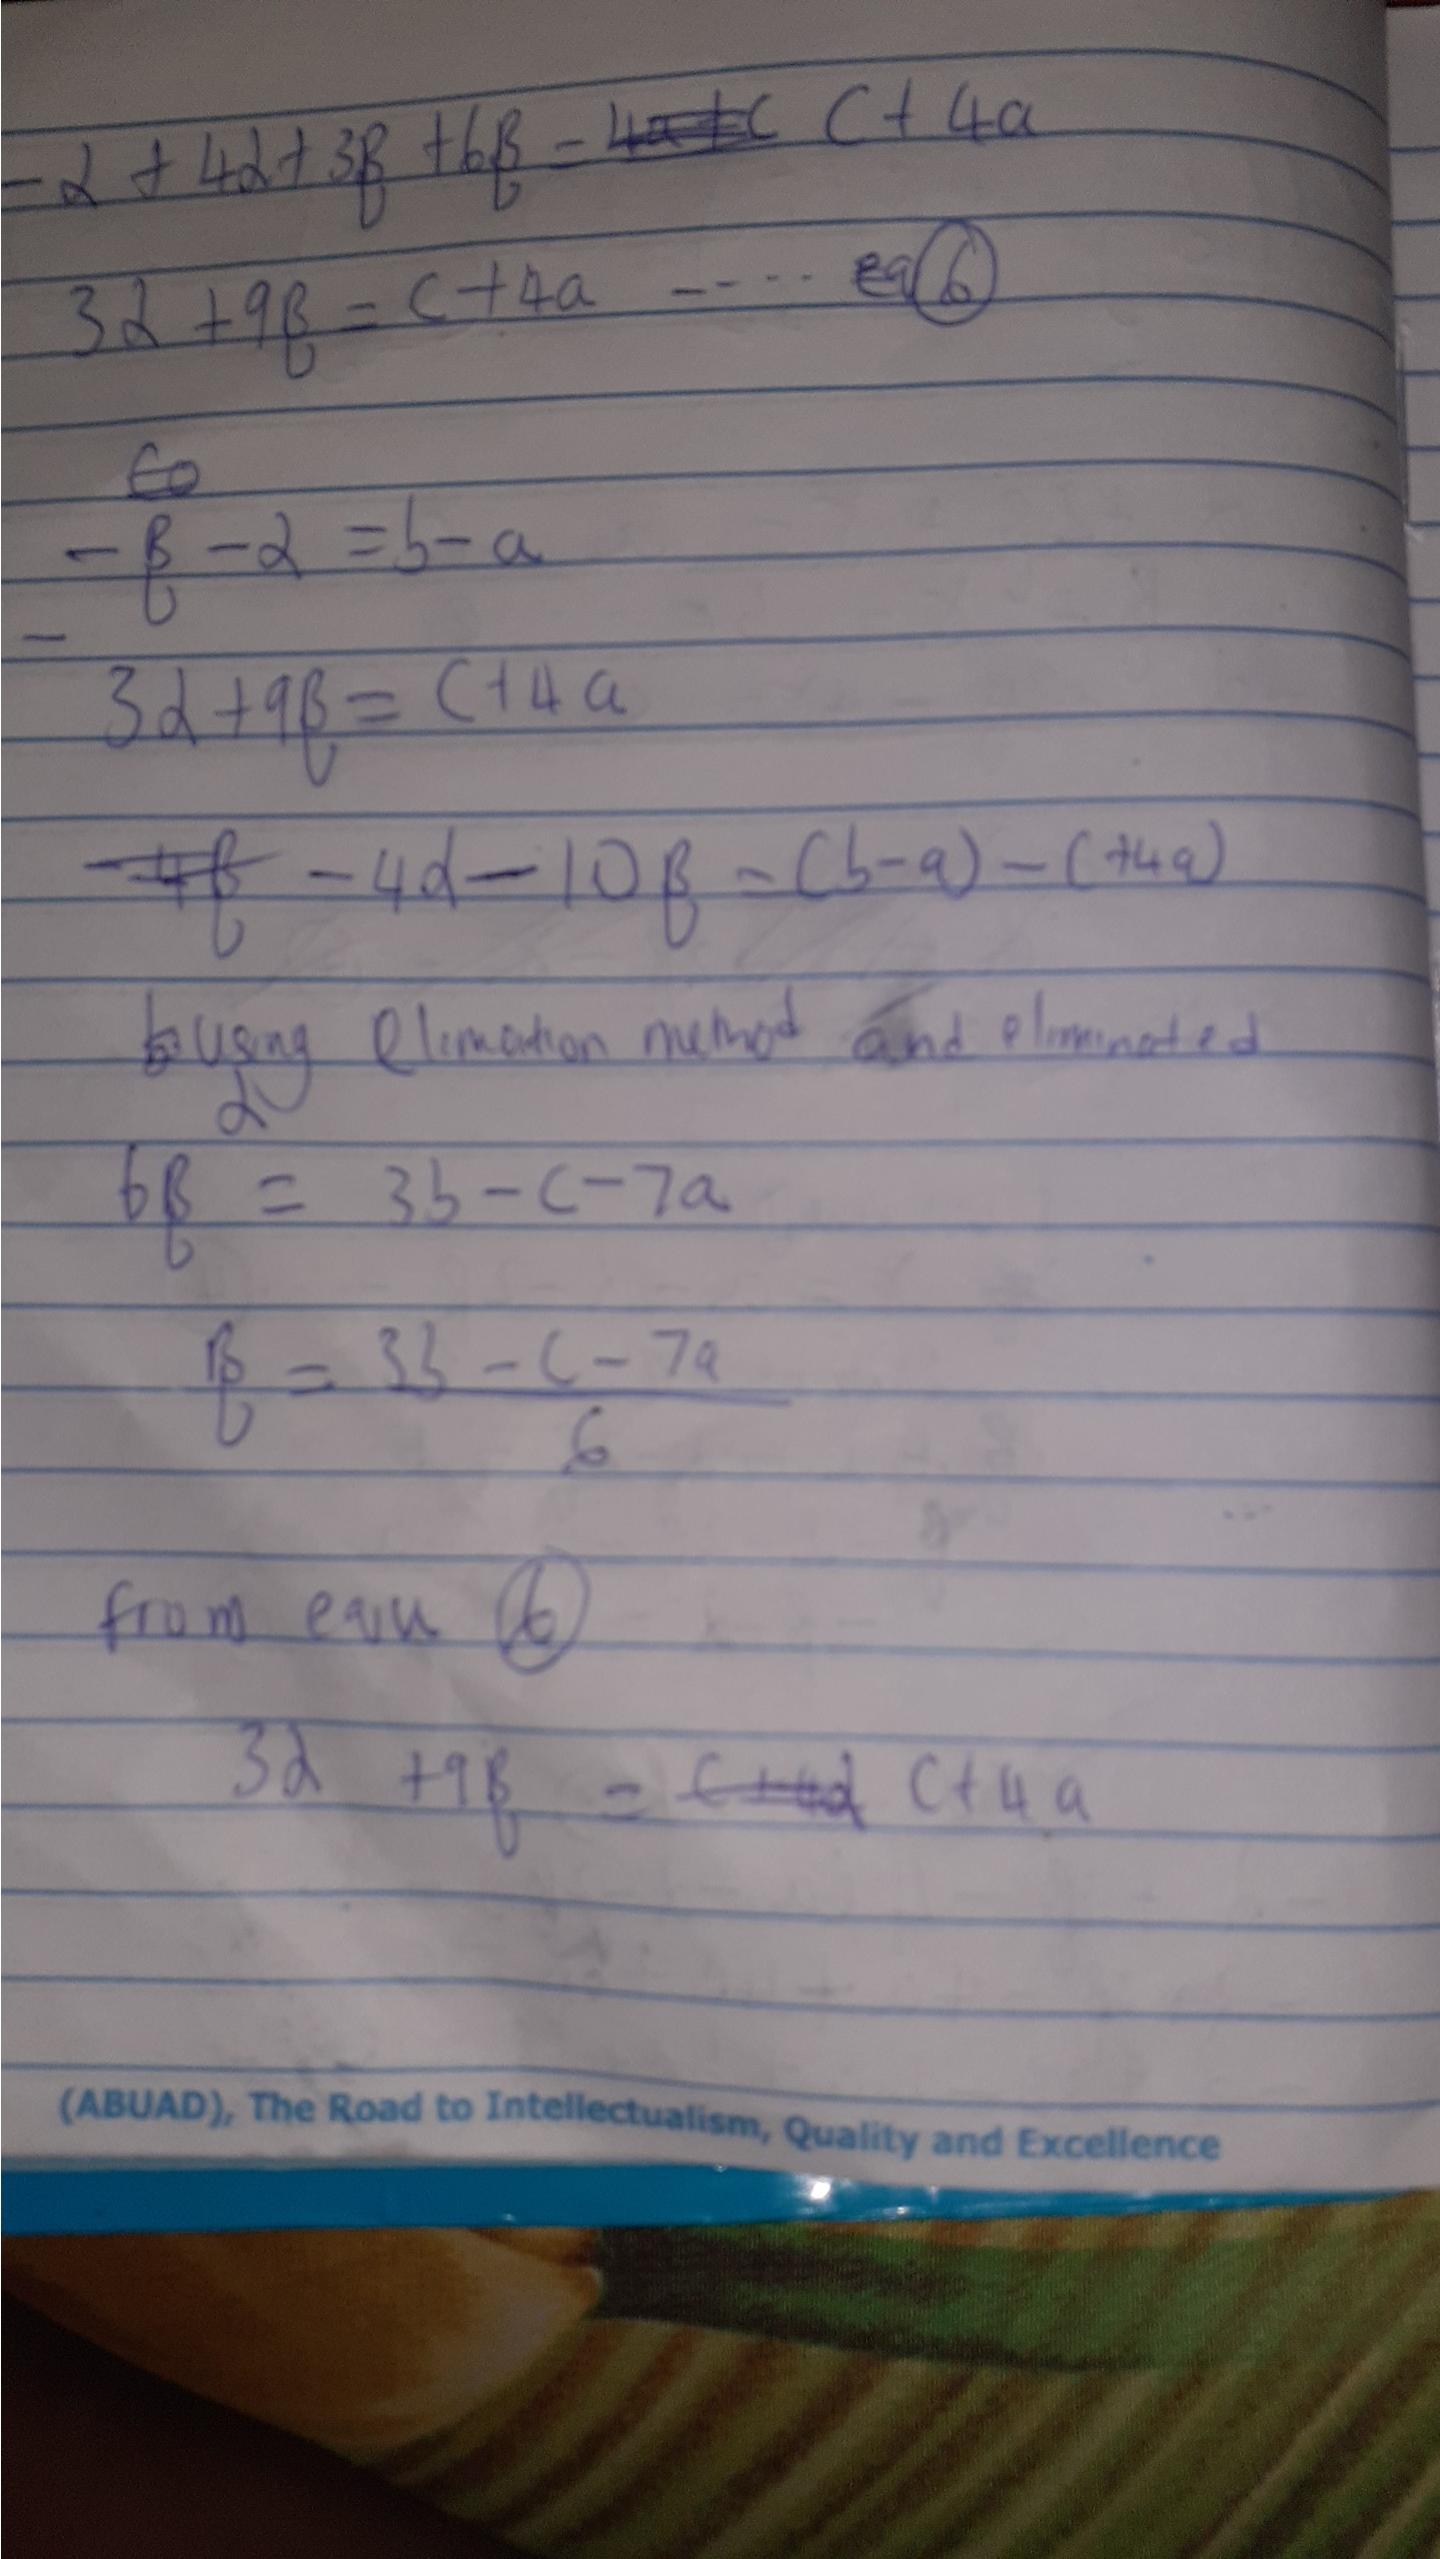 -α + 4α + 3β + 6β = 4a+c C + 4a
3α + 9β = C + 4a ---- eq 6
Eo
-β - α = b - a
-
3α + 9β = C + 4a
-4β -4α - 10β = (b-a) - (+4a)
b using elimation method and eliminated
α
6β = 3b - C - 7a
β = 3b - C - 7a
6
from equ 6
3α + 9β = C+4α C + 4a
(ABUAD), The Road to Intellectualism, Quality and Excellence